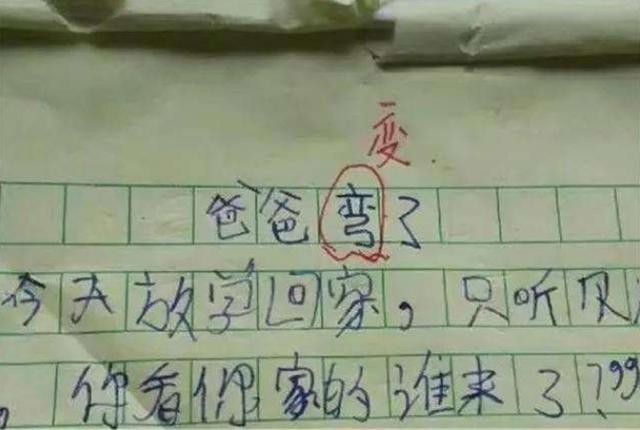 变
爸爸弯了
今天放学回家,只听见
。你看你家的谁来了?"